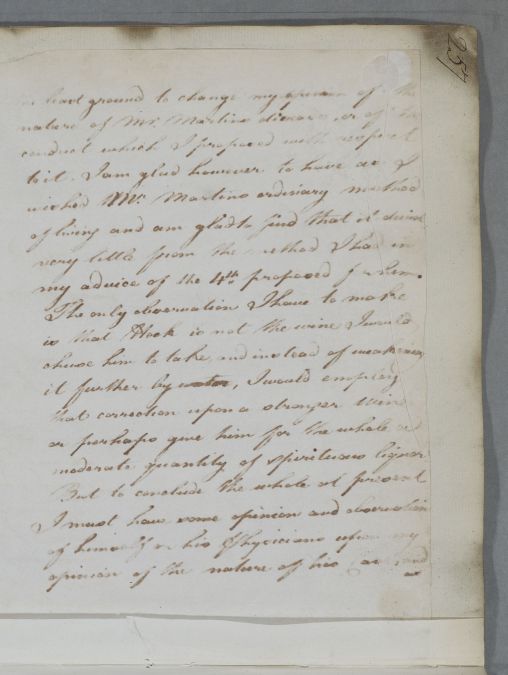 least ground to change my opinion of the
nature of Mr. Martins disease, or of the
conduct which I proposed with respect
to it. I am glad however to have as I
wished Mr. Martins ordinary method
of living and am glad to find that it
very little from the method I had in
my advice of the 4th. proposed for him.
The only observation I have to make
is that Hock is not the wine I would
chuse him to take and instead of weakening
it further by water, I would employ
that correction upon a stronger wine
or perhaps give him for the whole a
moderate quantity of spirituous liquor
But to conclude the whole at present
I must have some opinion and observation
of himself or his Physicians upon my
opinion of the nature of his case and
257